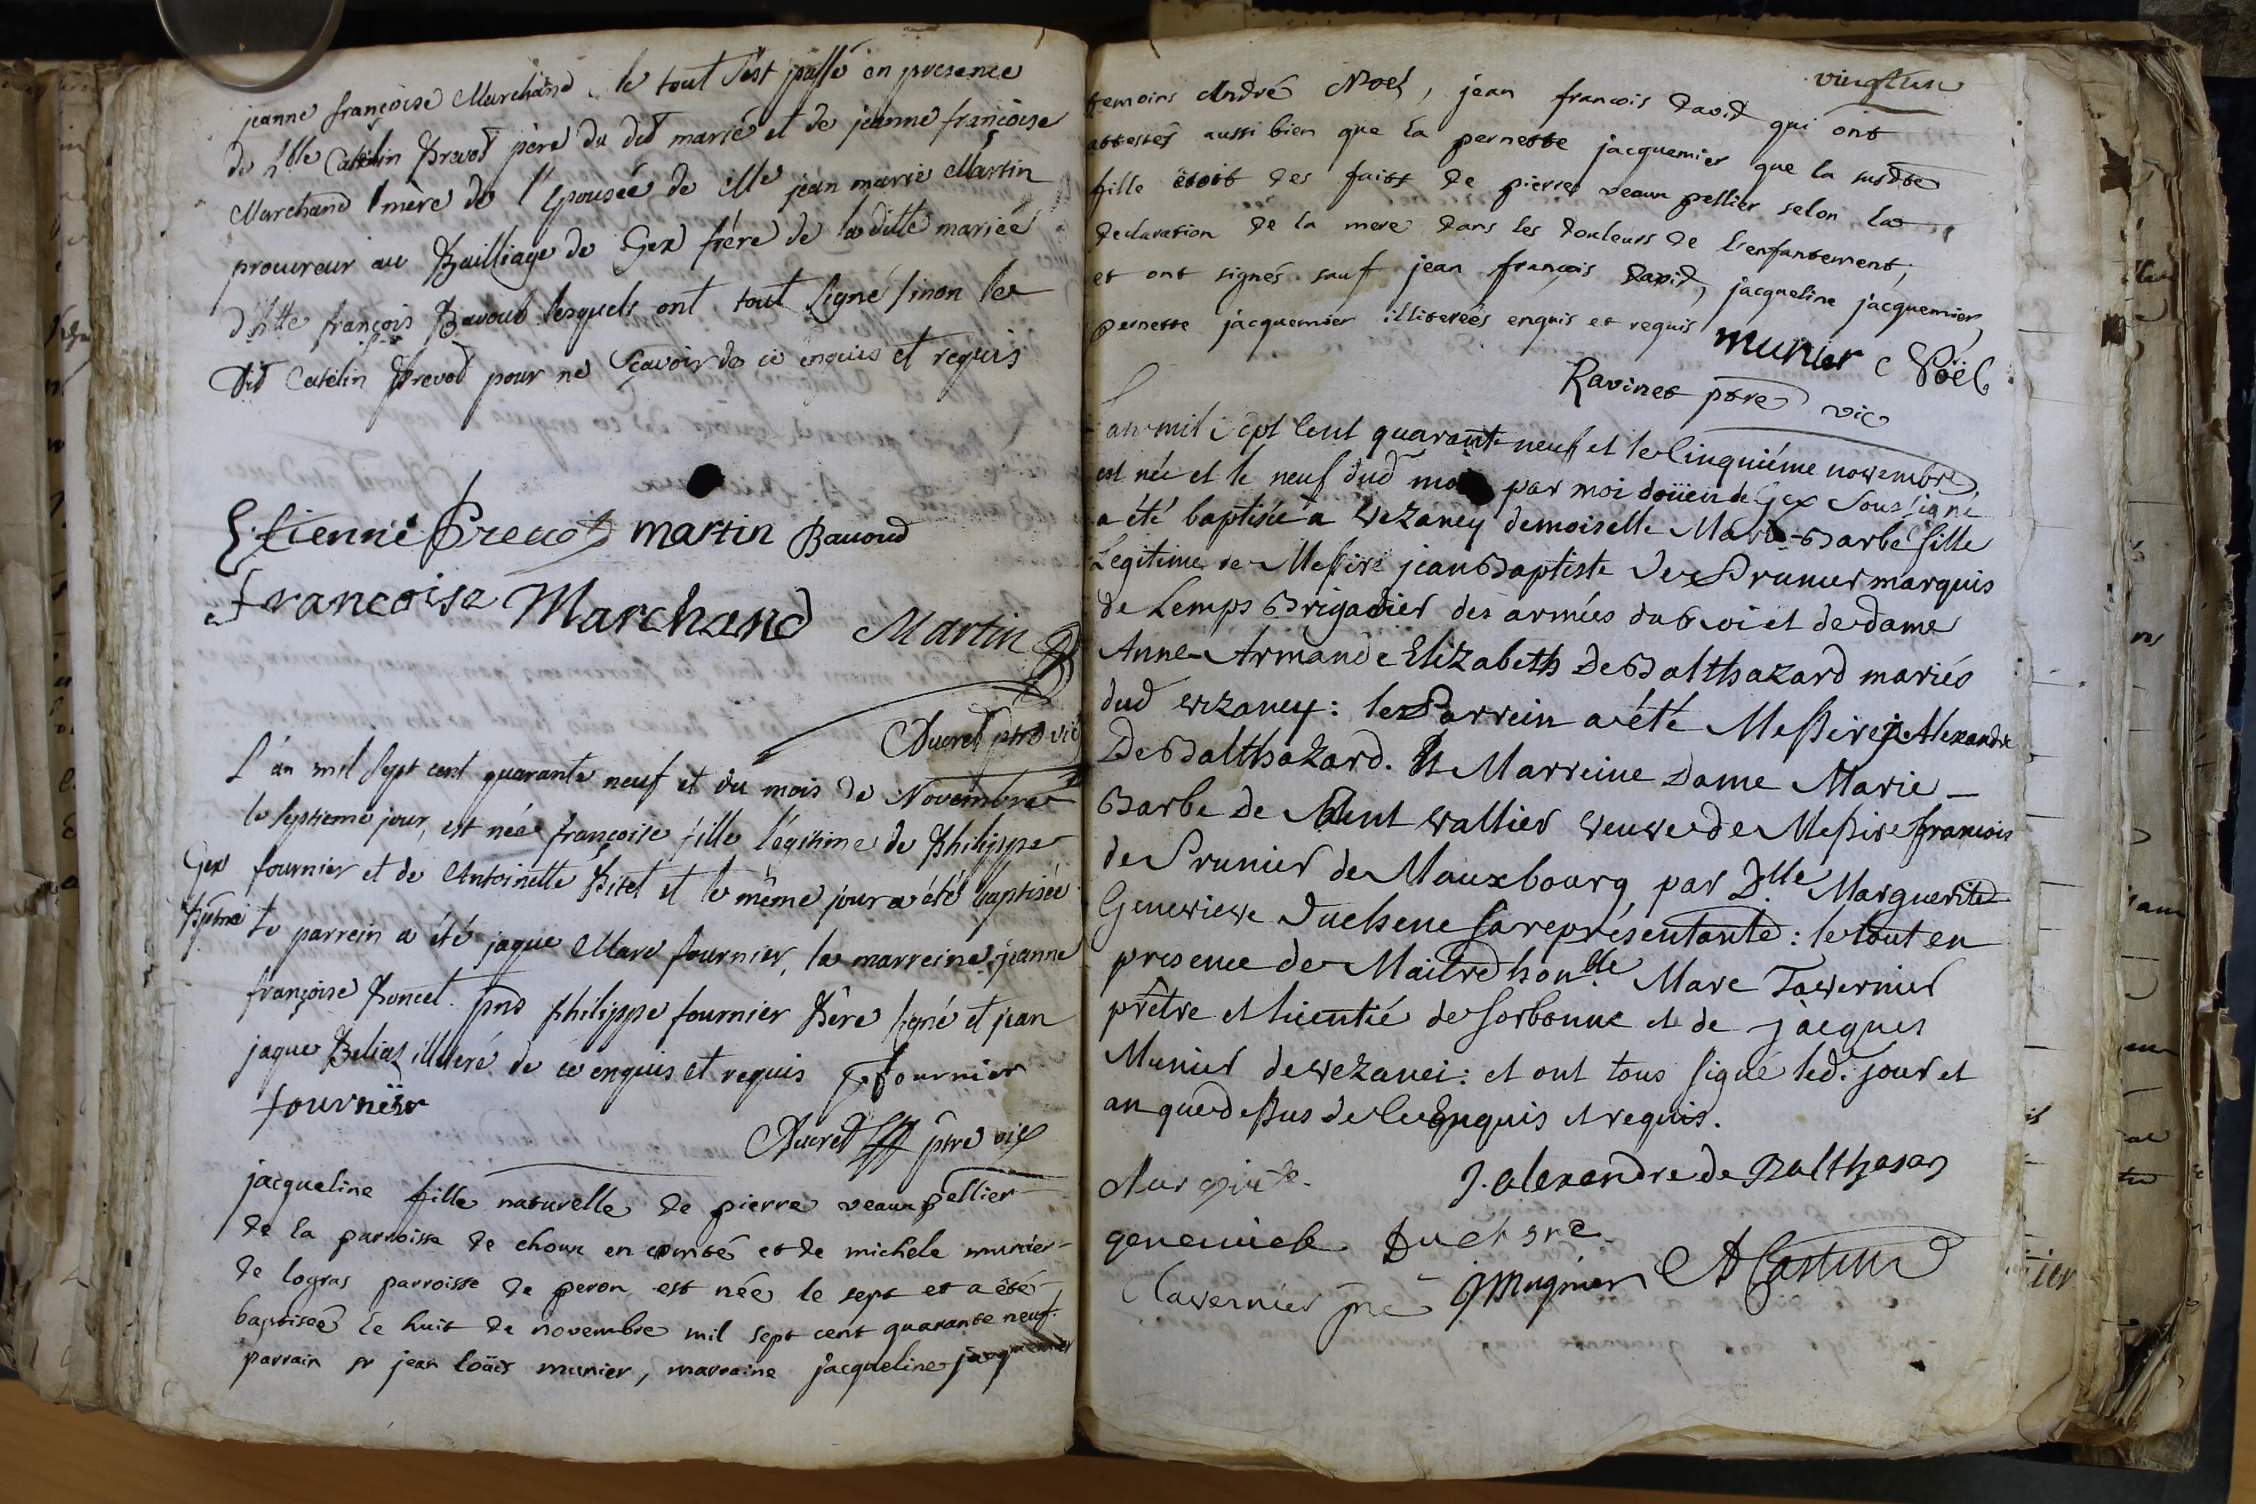 jeanne françoise Marchand, le tout s'est passé en presence
de hble Catelin Prevot père du dit marié et de jeanne françoise
Marchand mère de l'Epousée de Me jean marie Martin
procureur au Bailliage de Gex frére de la ditte mariée
d'hble françois Bavoud lesquels ont tout signé sinon le
dit Catelin Prevot pour ne sçavoir de ce enquis et requis
Etienne Prevot martin Bavoud
francoise Marchand Martin
Ducret ptre vic
L'an mil sept cent quarante neuf et du mois de Novembre
le septieme jour, est née françoise fille légitime de Philippe
Gex fournier et de Antoinette Pitet et le même jour a été baptisée
Bptme le parrein a été jaque Marc fournier, la marreine jeanne
françoise Poncet. pnts philippe fournier Père signé et jean
jaque Belias illiteré de ce enquis et requis p fournier
fournier
Ducret ptre vic
jacqueline fille naturelle de pierre veaux pellier
de la parroisse de choux en comté et de michele munier
de logras parroisse de peron est née le sept et a été
baptiseé le huit de novembre mil sept cent quarante neuf.
parrain sr jean loüis munier, marraine jacqueline jacquemier
vingt un
temoins André Noel, jean francois david qui ont
attestés aussi bien que la pernette jacquemier que la susdte
fille etoit des faits de pierre veaux pellier selon la
declaration de la mere dans les douleurs de l'enfantement,
et ont signés sauf jean françois david, jacqueline jacquemier,
pernette jacquemier illitereés enquis et requis munier Noël
Ravinet ptre vic
L'an mil sept cent quarante neuf et le Cinquiéme novembre,
est née et le neuf dud mois par moi doüen de Gex soussigné
a été baptisée a Vezaney demoiselle Marie-Barbe fille
Légitime de Messire jean Baptiste de Prunier marquis
de Lemps Brigadier des armées du Roi et de dame
Anne-Armande Elizabeth De Balthazard mariés
dud Vezaney: le Parrein a été Messire j. Alexandre
De Balthazard. et Marreine Dame Marie-
Barbe de Saint Vallier veuve de Messire francois
de Prunier de Mauxbourg, par Dlle Marguerite
Genevieve Duchene sa représentante: le tout en
presence de Maitre honble Marc Tavernier
prêtre et licentié de sorbonne et de jacques
Munier de Vezanei: et ont tous signé led. jour et
an que dessus de ce Enquis et requis.
Margueritte J. alexandre de Balthasar
genevieve Duchene
Tavernier ptre J Mugnier Castin